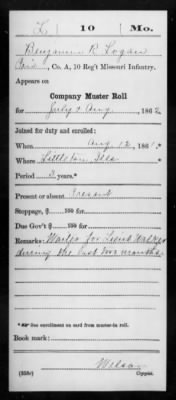 L | 10 | Mo.
Benjamin R. Logan
Co. A, 10 Reg't Missouri Infantry.
Appears on
Company Muster Roll
for July & Aug, 1862
Joined for duty and enrolled:
When Aug 12, 1861.*
Where Littleton, Ills
Period 3 years.*
Present or absent Present
Stoppage, $ 100 for
Due Gov't $ 100 for
Remarks: for Lieut
during the last two months.
* See enrollment on card from muster-in roll.
Book mark:
(358c) Copyist.